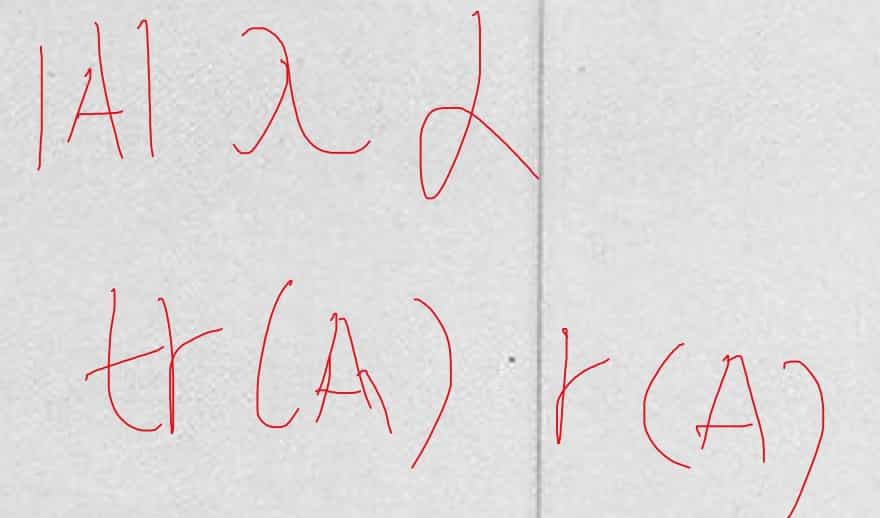 |A| λ α
tr(A) r(A)